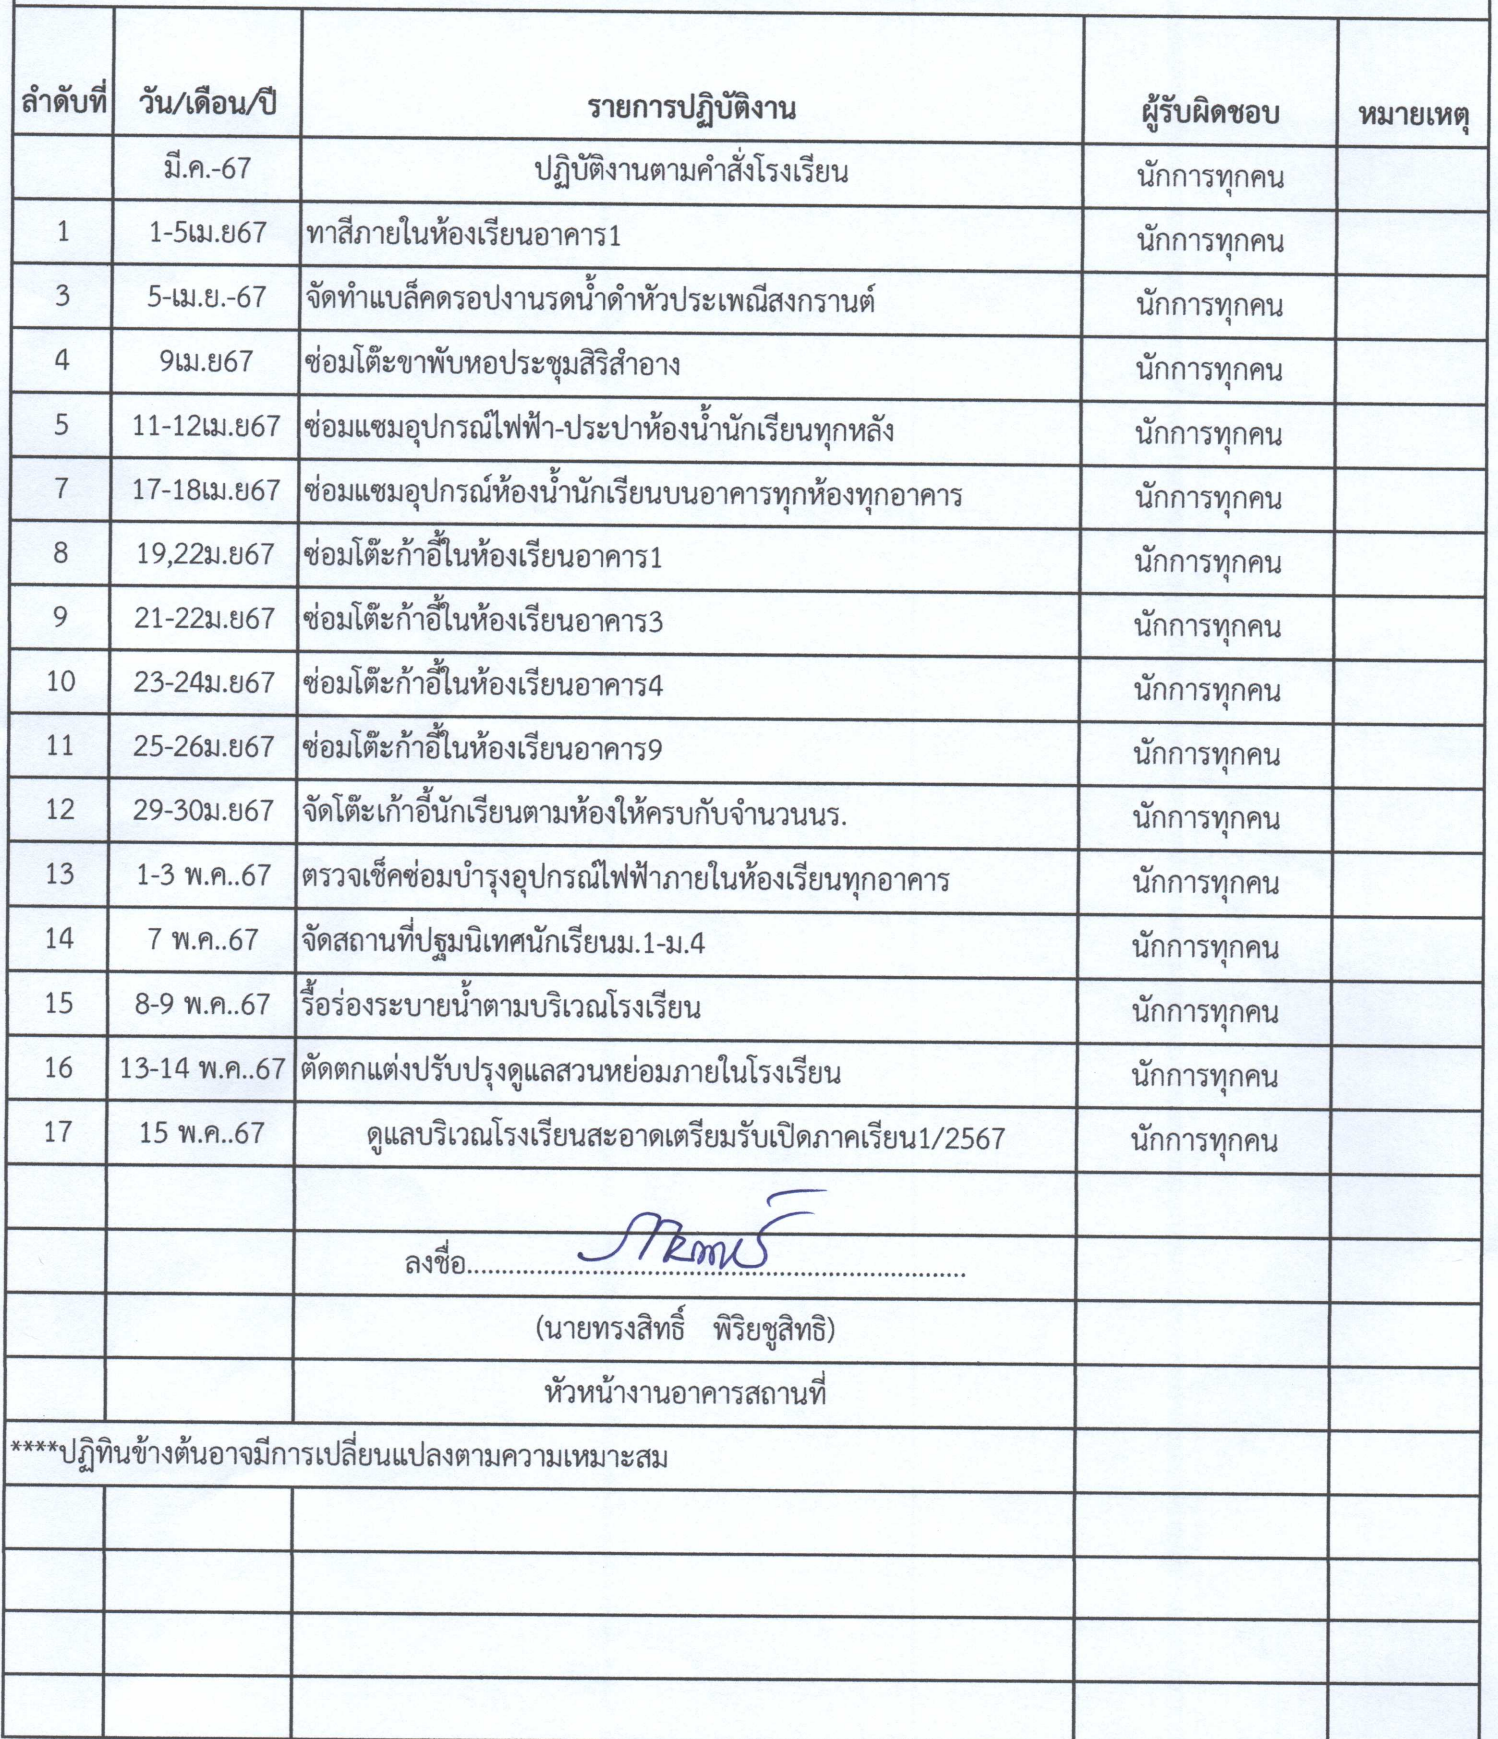 ลำดับที่ วัน/เดือน/ปี รายการปฏิบัติงาน ผู้รับผิดชอบ หมายเหตุ
มี.ค.-67 ปฏิบัติงานตามคำสั่งโรงเรียน นักการทุกคน
1 1-5เม.ย67 ทาสีภายในห้องเรียนอาคาร1 นักการทุกคน
3 5-เม.ย.-67 จัดทำแบล็คดรอปงานรดน้ำดำหัวประเพณีสงกรานต์ นักการทุกคน
4 9เม.ย67 ซ่อมโต๊ะขาพับหอประชุมสิริสำอาง นักการทุกคน
5 11-12เม.ย67 ซ่อมแซมอุปกรณ์ไฟฟ้า-ประปาห้องน้ำนักเรียนทุกหลัง นักการทุกคน
7 17-18เม.ย67 ซ่อมแซมอุปกรณ์ห้องน้ำนักเรียนบนอาคารทุกห้องทุกอาคาร นักการทุกคน
8 19,22ม.ย67 ซ่อมโต๊ะก้าอี้ในห้องเรียนอาคาร1 นักการทุกคน
9 21-22ม.ย67 ซ่อมโต๊ะก้าอี้ในห้องเรียนอาคาร3 นักการทุกคน
10 23-24ม.ย67 ซ่อมโต๊ะก้าอี้ในห้องเรียนอาคาร4 นักการทุกคน
11 25-26ม.ย67 ซ่อมโต๊ะก้าอี้ในห้องเรียนอาคาร9 นักการทุกคน
12 29-30ม.ย67 จัดโต๊ะเก้าอี้นักเรียนตามห้องให้ครบกับจำนวนนร. นักการทุกคน
13 1-3 พ.ค..67 ตรวจเช็คซ่อมบำรุงอุปกรณ์ไฟฟ้าภายในห้องเรียนทุกอาคาร นักการทุกคน
14 7 พ.ค..67 จัดสถานที่ปฐมนิเทศนักเรียนม.1-ม.4 นักการทุกคน
15 8-9 พ.ค..67 รื้อร่องระบายน้ำตามบริเวณโรงเรียน นักการทุกคน
16 13-14 พ.ค..67 ตัดตกแต่งปรับปรุงดูแลสวนหย่อมภายในโรงเรียน นักการทุกคน
17 15 พ.ค..67 ดูแลบริเวณโรงเรียนสะอาดเตรียมรับเปิดภาคเรียน1/2567 นักการทุกคน
ลงชื่อ......................................................................
(นายทรงสิทธิ์ พิริยชูสิทธิ)
หัวหน้างานอาคารสถานที่
****ปฏิทินข้างต้นอาจมีการเปลี่ยนแปลงตามความเหมาะสม